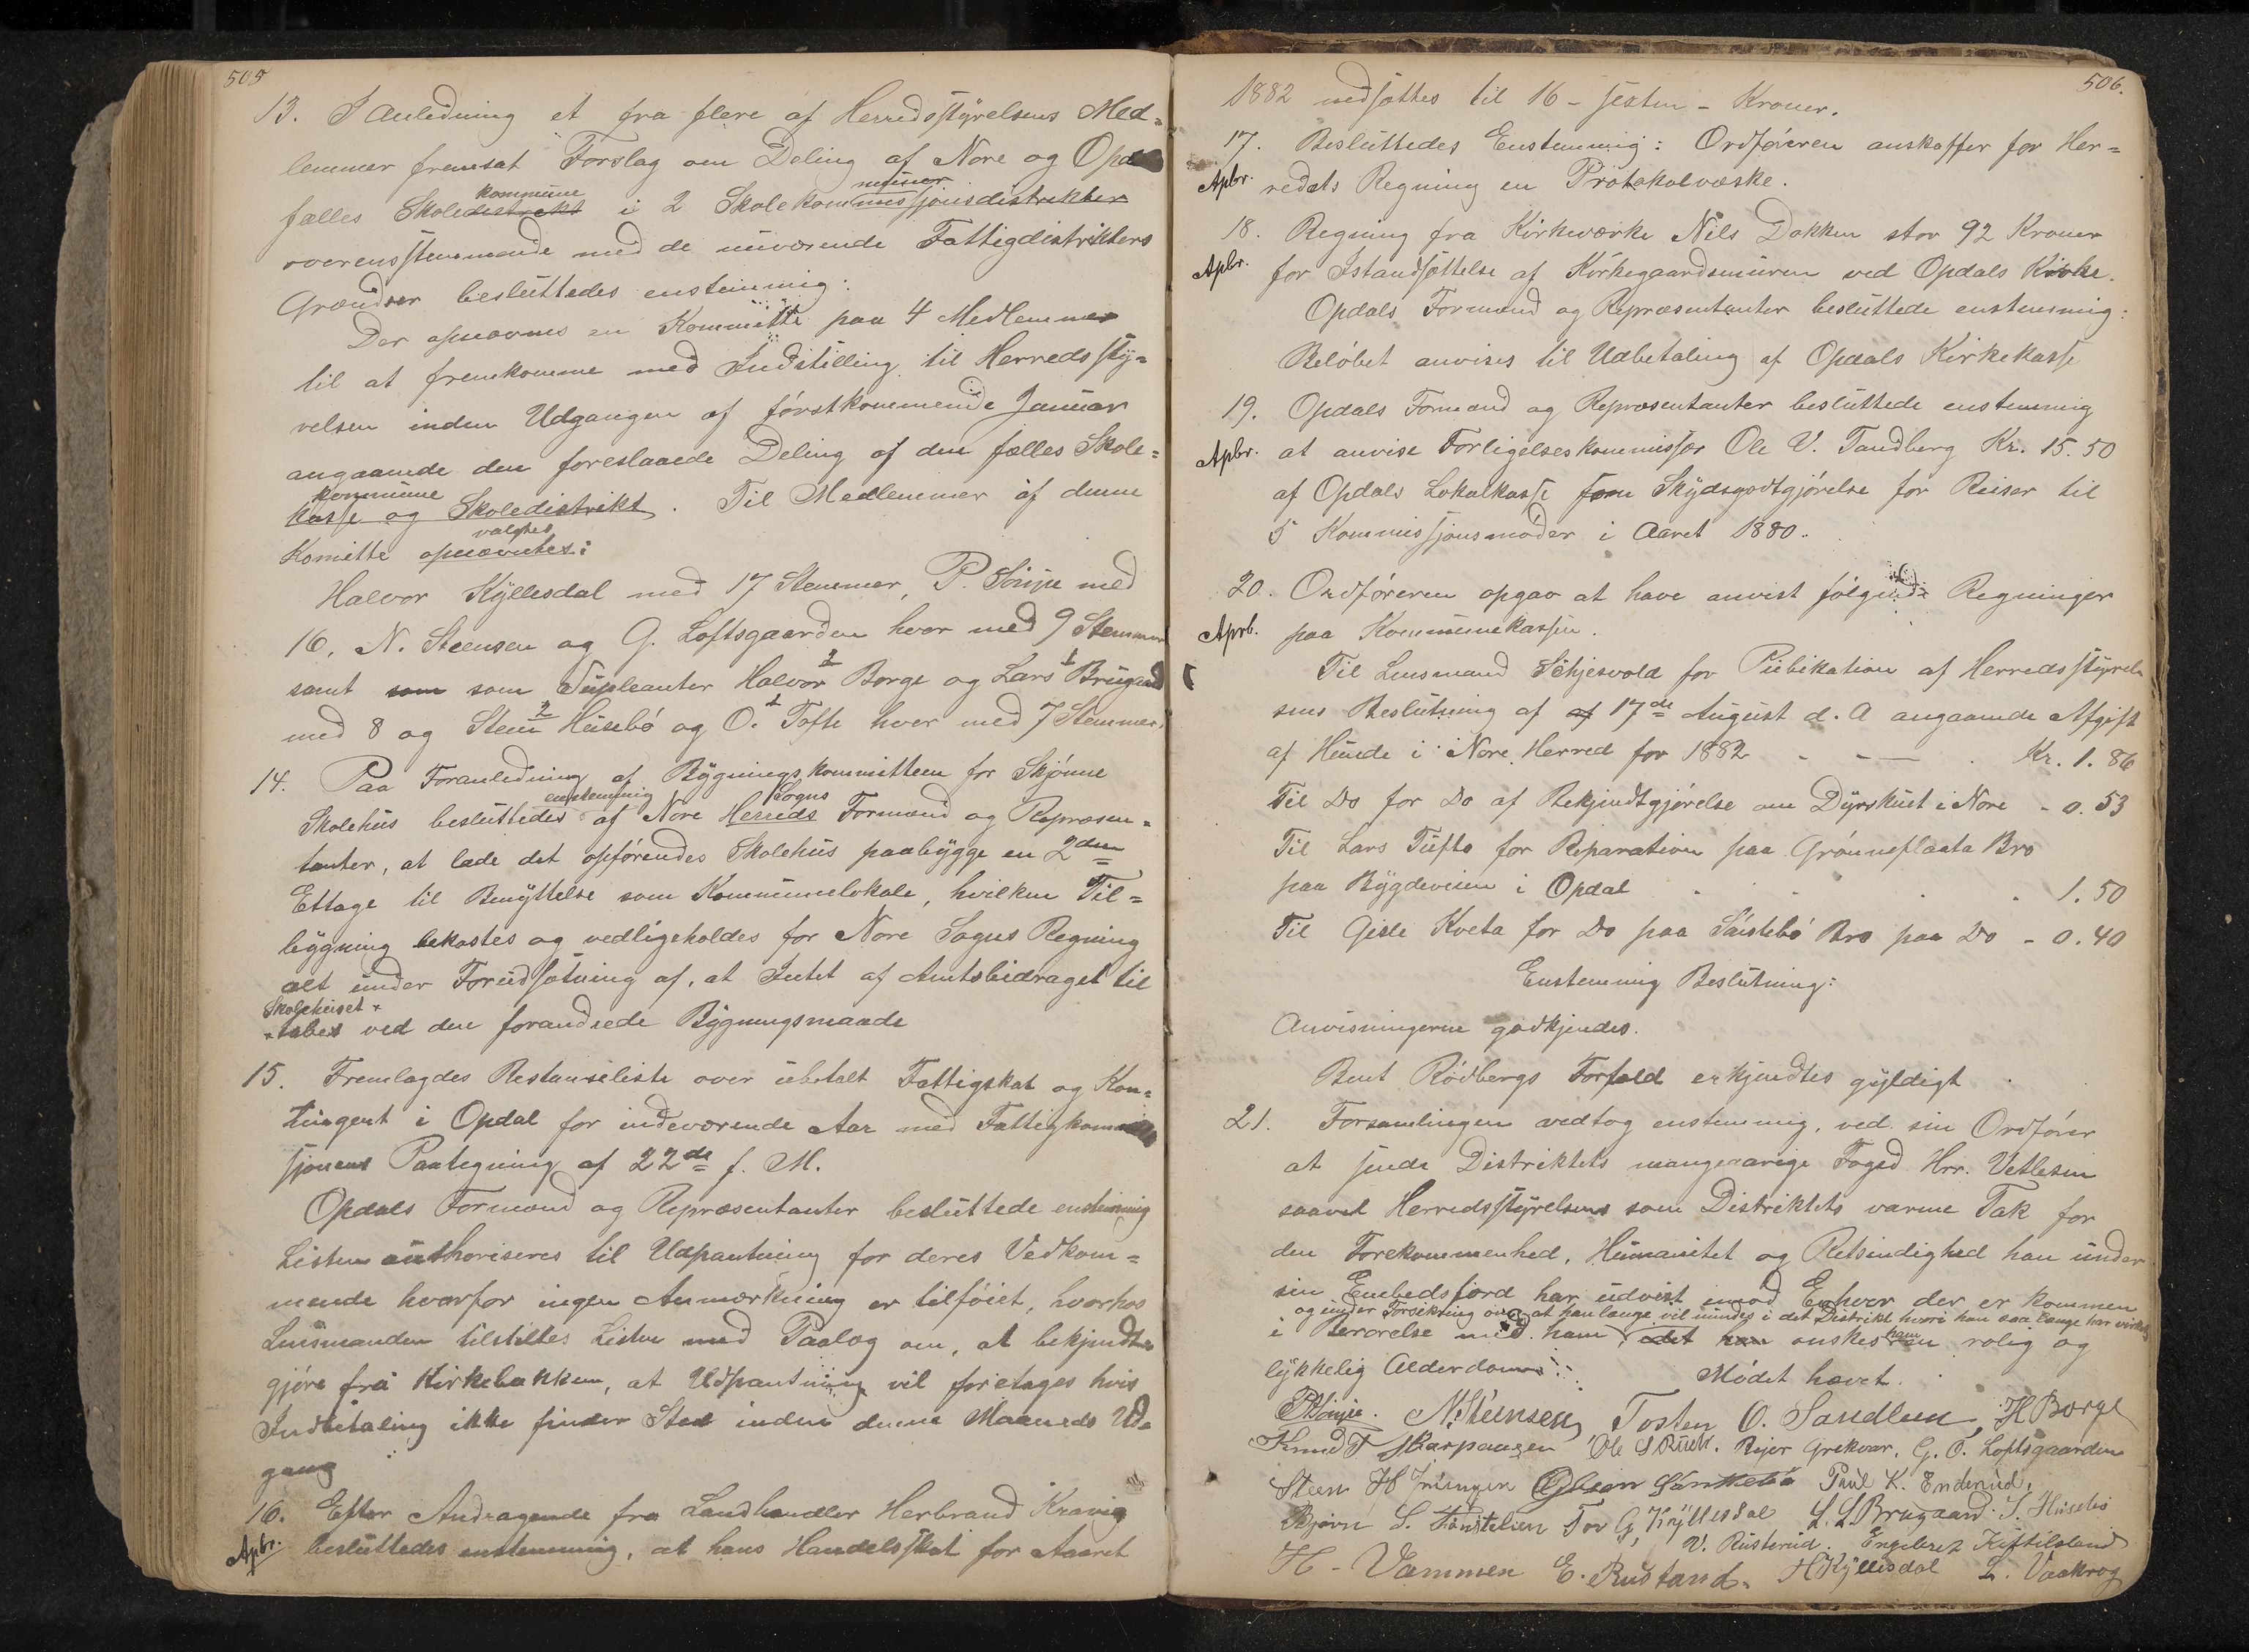 505
13. I Anledning et fra flere af Herredsstyrelsens Med=
lemmer fremsat Forslag om Deling af Nore og Opdal
fælles Skoledistrekt kommune i 2 Skolekommissjonsdistrikter muner
overensstemmende med de nuværende Fattigdistrikters
Grændser besluttedes enstemmig:
Der opnævnes en Kommitte paa 4 Medlemmer
til at fremkomme med Indstilling til Herredssty=
relsen inden Udgangen af førstkommende Januar
angaaende den foreslaaede Deling af den fælles Skole=
kommune
kasse og Skoledistrikt. Til Medlemmer af denne
Komitte opnævntes: valgtes
Halvor Kyllesdal med 17 Stemmer, P. Sönju med
16, N. Steensen og G. Loftsgaarden hver med 9 Stemmer
samt som som Supleanter Halvor 2 Borge og Lars 1 Brugaard
med 8 og Steen 2 Husebö og O. 1 Tofte hver med 7 Stemmer.
14. Paa Foranledning af Bygningskommitteen for Skjönne
Skolehus besluttedes enstemmig af Nore Herreds Sogns Formænd og Repræsen=
tanter, at lade det opførendes Skolehus paabygge en 2den
Ettage til Benyttelse som Kommunelokale, hvilken Til=
bygning bekostes og vedligeholdes for Nore Sogns Regning
alt under Forudsætning af, at Intet af Amtsbidraget til
Skolehuset
tabes ved den forandrede Bygningsmaade
15. Fremlagdes Restanseliste over ubetalt Fattigskat og Kon=
tingent i Opdal for indeværende Aar med Fattigkommis
sjonens Paategning af 22de f. M.
Opdals Formænd og Repræsentanter besluttede enstemmig
Listen authoriseres til Udpantning for deres Vedkom=
mende hvorfor ingen Anmærkning er tilføiet, hvorhos
Lensmanden tilstilles Listen med Paalæg om, at bekjendt=
gjøre fra Kirkebakken, at Udpantning vil foretages hvis
Indbetaling ikke finder Sted inden denne Maaneds Ud=
gang
16. Efter Andragende fra Landhandler Herbrand Kravig
Apbr. besluttedes enstemmig, at hans Handelsskat for Aaret
506.
1882 nedsættes til 16 - sexten - Kroner.
17. Besluttedes Enstemmig: Ordføreren anskaffer for Her=
Apbr. redets Regning en Protokolvæske.
18. Regning fra Kirkeværke Nils Dokken stor 92 Kroner
Apbr. for Istandsættelse af Kirkegaardsmuren ved Opdals Kirke.
Opdals Formænd og Repræsentanter besluttede enstemmig:
Beløbet anvises til Udbetaling af Opdals Kirkekasse
19. Opdals Formænd og Repræsentanter besluttede enstemmig
Apbr. at anvise Forligelseskommissær Ole V. Tandberg Kr. 15.50
af Opdals Lokalkasse som Skydsgodtgjørelse for Reiser til
5 Kommissjonsmøder i Aaret 1880.
20. Ordføreren opgav at have anvist følgende Regninger
Aprb. paa Kommunekassen.
Til Lensmand Schjesvold for Publikation af Herredsstyrel
sens Beslutning af af 17de August d. A angaaende Afgift
af Hunde i Nore Herred for 1882 - - - . Kr. 1.86
Til Do for Do af Bekjendtgjørelse om Dyrskuet i Nore - 0.53
Til Lars Tufto for Reparation paa Grønneflaata Bro
paa Bygdeveien i Opdal . . . . 1.50
Til Gisle Kveta for Do paa Söistebö Bro paa Do - 0.40
Enstemmig Beslutning:
Anvisningerne godkjendes.
Bent Rödbergs Forfald erkjendtes gyldigt .
21. Forsamlingen vedtog enstemmig, ved sin Ordfører
at sende Distriktets mangeaarige Foged Hrr. Vetlesen
saavel Herredsstyrelsens som Distriktets varme Tak for
den Forekommenhed, Humanitet og Retsindighed han under
sin Embedsfærd har udvist imod Enhver der er kommen
og under Forsikring om at han længe vil mindes i det Distrikt hvori han saa længe har virket
i Berørelse med ham, idet han ønskes ham en rolig og
lykkelig Alderdom
Mødet hævet.
P Sönju. N. Steensen Tosten O. Sandleen, H Borge
Knud T Ole S Ruen. Reier Grekvar, G. O. Loftsgaarden
Steen H Paul K. Enderud,
Bjørn S. Tor G, Kyllesdal L. L. Brugaard. S. Husebö
V. Rusterud. Engebret Kiftilsland
H - Vammen E. Rustand. H Kyllesdal L. Vaakrog